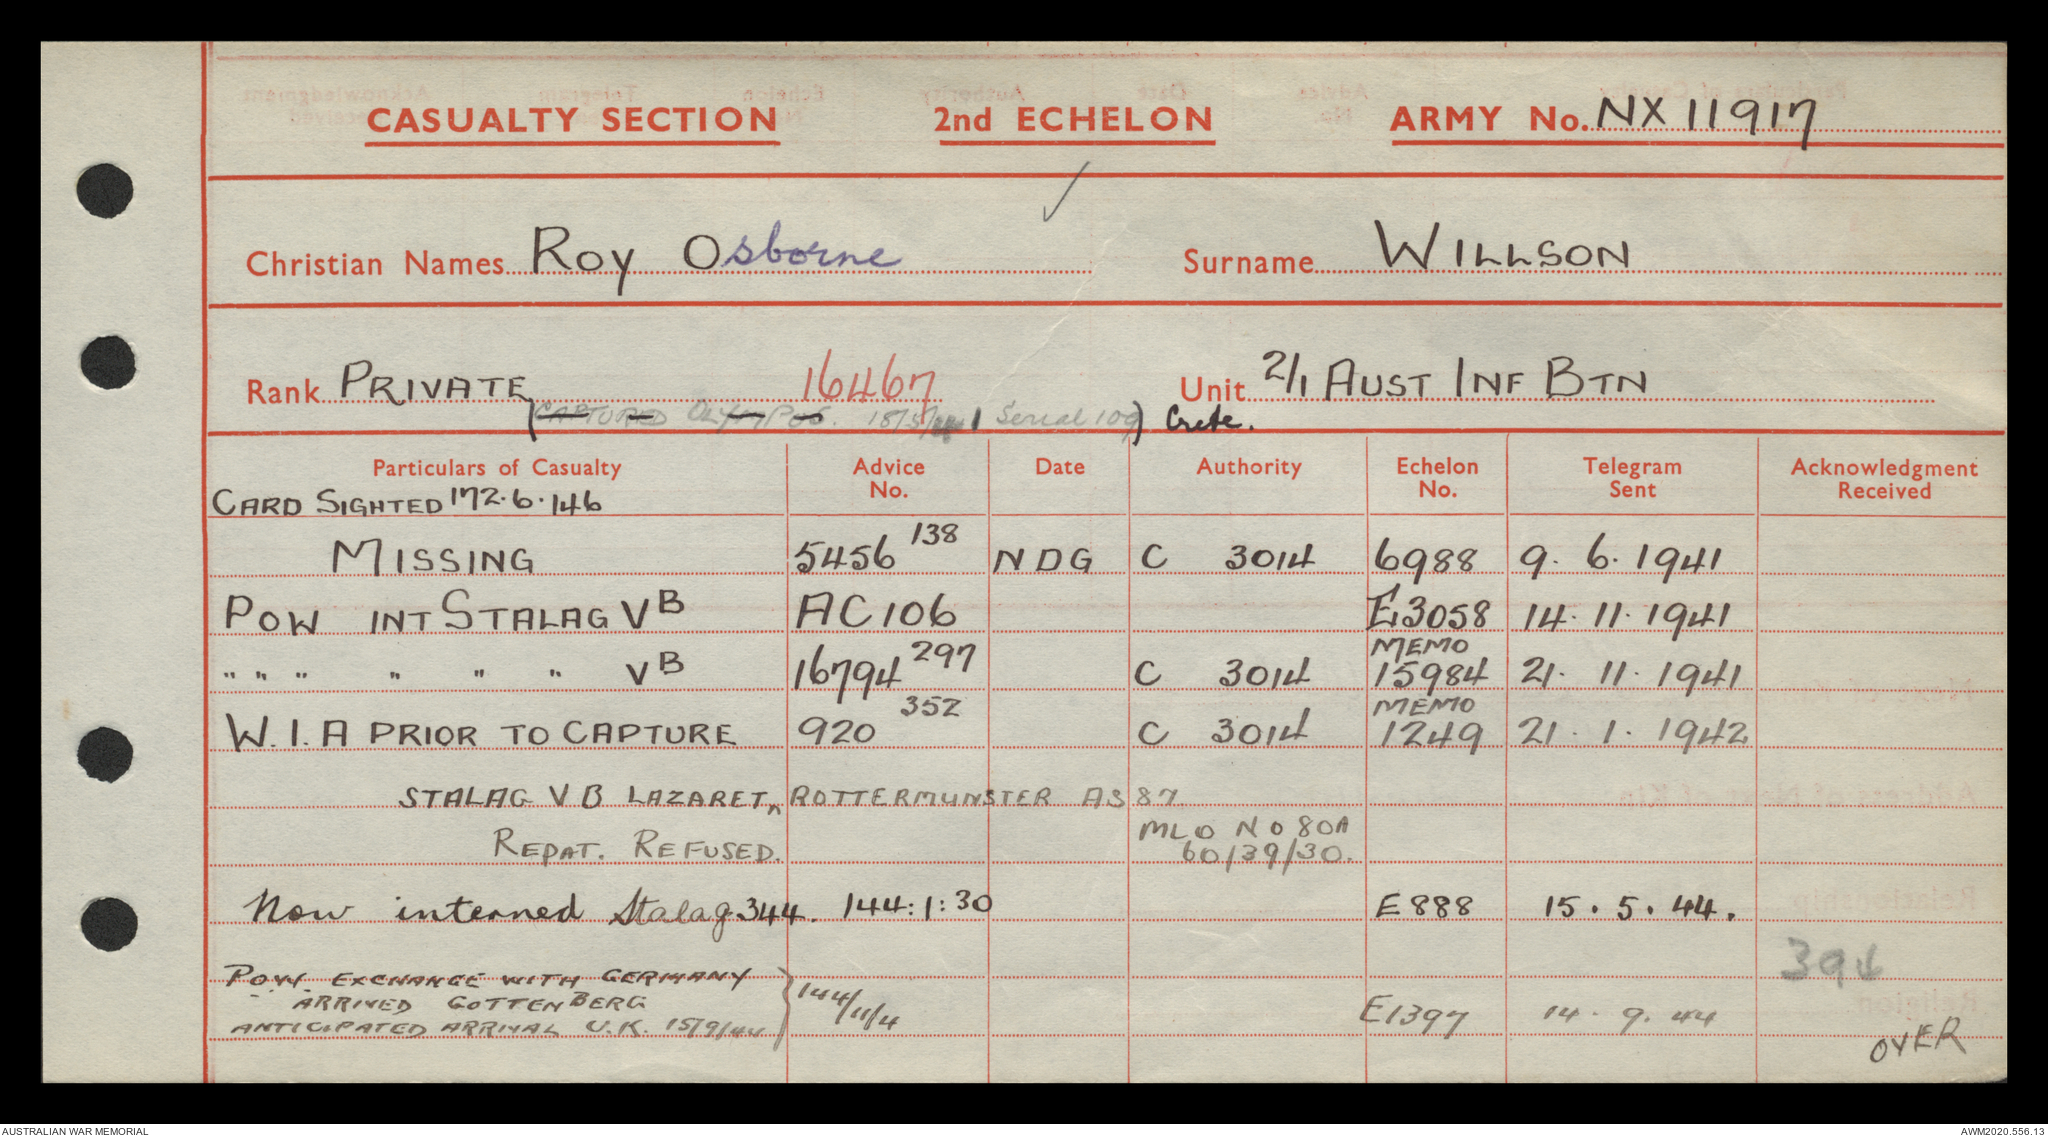 CASUALTY SECTION 2nd ECHELON ARMY No. NX 11917
Christian Names Roy Osborne Surname WILLSON
Rank PRIVATE 16467 Unit 2/1 AUST INF BTN
(CAPTURED 18/5/41 Serial 109) Crete.
Particulars of Casualty Advice No. Date Authority Echelon No. Telegram Sent Acknowledgment Received
CARD SIGHTED 172.6.146
MISSING 5456 138 NDG C 3014 6988 9. 6. 1941
POW INT STALAG VB AC 106 E3058 14. 11. 1941
" " " " " " VB 16794 297 C 3014 MEMO 15984 21. 11. 1941
W.I.A PRIOR TO CAPTURE 920 352 C 3014 MEMO 1249 21. 1. 1942
STALAG VB LAZARET, ROTTERMUNSTER AS 87
REPAT. REFUSED. MLO NO 80A 60/39/30.
Now interned Stalag 344. 144:1:30 E888 15. 5. 44.
394
P.O.W. EXCHANGE WITH GERMANY
ARRIVED GOTTENBERG 144/11/4 E1397 14. 9. 44
ANTICIPATED ARRIVAL U.K. 15/9/44
OVER
AUSTRALIAN WAR MEMORIAL AWM2020.556.13